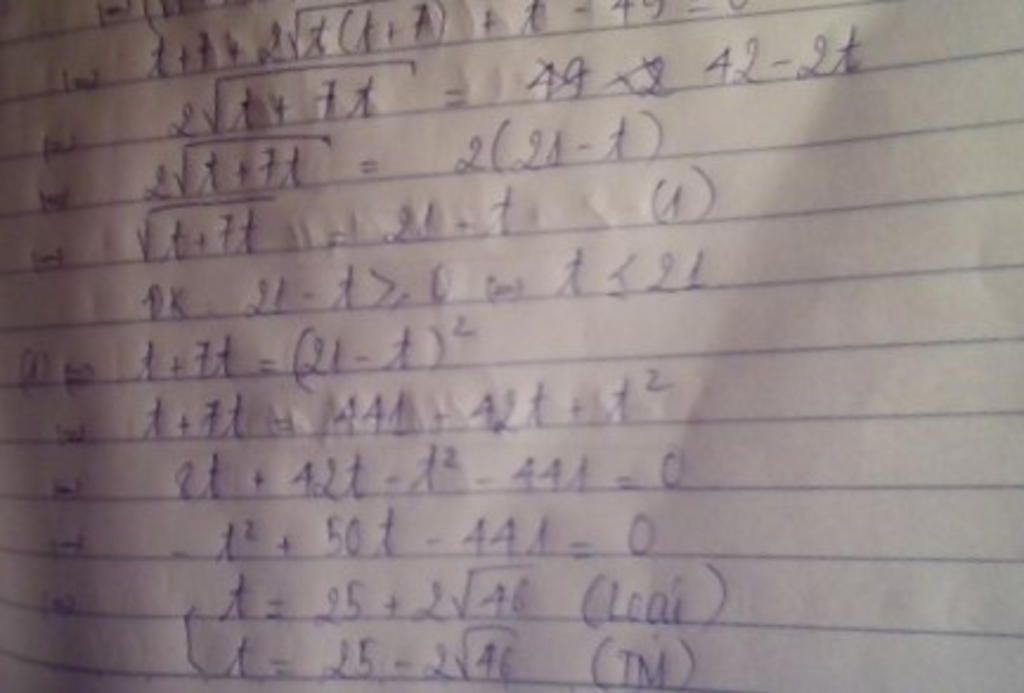 t+7+2√t(t+7) + t - 49 = 0
⇔ 2√t+7t = 42-2t
⇔ 2√t+7t = 2(21-t)
⇔ √t+7t = 21-t (1)
ĐK 21-t ≥ 0 ⇔ t ≤ 21
(1) ⇔ t+7t = (21-t)²
⇔ t+7t = 441 - 42t + t²
⇔ 8t + 42t - t² - 441 = 0
⇔ -t² + 50t - 441 = 0
⇔ t = 25 + 2√46 (Loại)
t = 25 - 2√46 (TM)